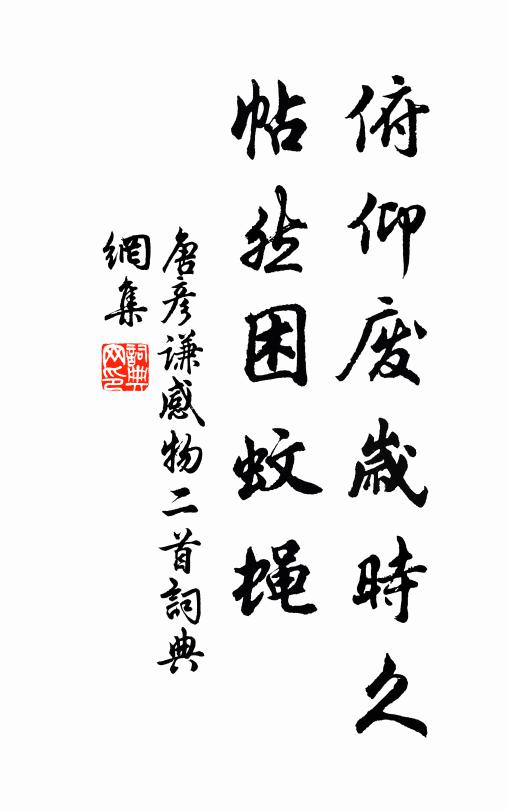 俯仰废歲時久
帖然困蚊蝇
唐彦谦感物二首詞典
網集
詞典网印